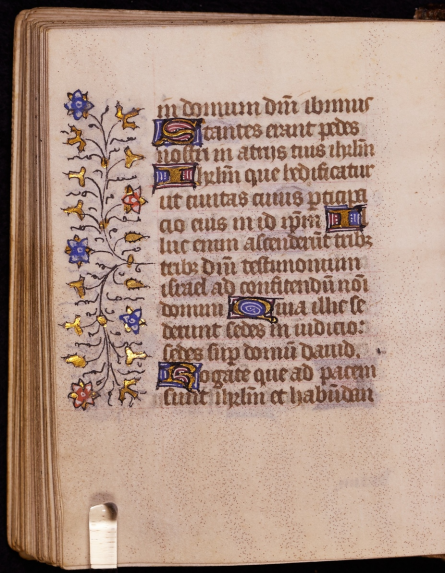 in domum dm̄ ibimus
Stantes erant pedes
nostri in atrijs tuis ihrlm̄
Ihrlm̄ que hedificatur
ut ciuitas cuius p̄ticipa
cio eius in id ip̄m I
luc enim ascenderūt tribꝫ
tribꝫ dn̄i testimonium
israel ad confitendū noī
domini Quia illic se
derunt sedes in iudicio:
sedes sup domū dauid.
Rogate que ad pacem
sunt ihrlm̄ et habūdan